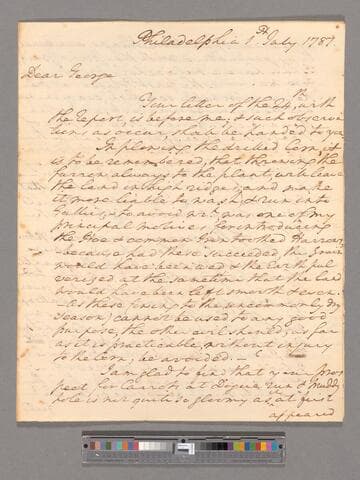 Philadelphia 1st July 1787
Dear George
Your letter of the 24th, with
the Report, is before me, & such observa
tions as occur, shall be handed to you
In plowing the drilled Corn, it
is to be remembered, that throwing the
furrow always to the plant, will leave
the land in high ridges, and make
it more liable to wash, & run into
Gullies; to avoid wch. was one of my
principal motives for introducing
the Hoe & common Iron toothed Harrow,
—because had these succeeded, the Grain
would have been and the Earth pul
verized at the same time that the land
would have been left smooth & even.
—As these (owing to the uncommonly dry
season) cannot be used to any good
purpose, the other evil should, as far
as it is practicable, without injury
to the Corn; be avoided.—
I am glad to find that your pros
pect for Carrots at Dogue run & Muddy
hole is not quite so gloomy as, at first
appeared